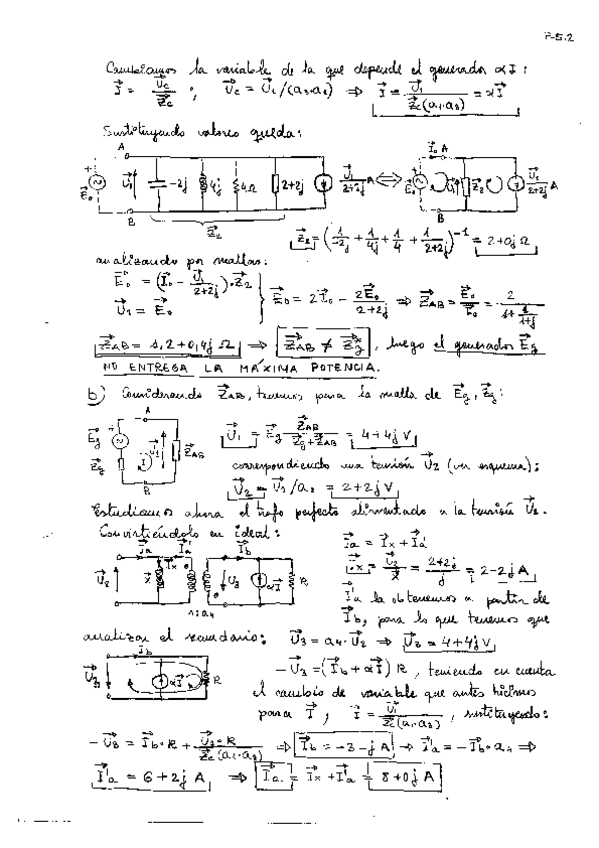 P-5.2
Cambiamos la variable de la que depende el generador αI :
I = Uc/Zc ; Uc = U1/(a1·a2) ⇒ I = U1/Zc(a1·a2) = αI
Sustituyendo valores queda:
A
A
I0
+
E0
U1
-2j
4j
4Ω
2+2j
U1/2+2j A
⇔
+
E0
U1
Z2
U1/2+2j A
B
B
Z2
Z2 = (1/-2j + 1/4j + 1/4 + 1/2+2j)^-1 = 2+0j Ω
analizando por mallas:
E0 = (I0 - U1/2+2j)·Z2
U1 = E0
E0 = 2I0 - 2E0/2+2j ⇒ ZAB = E0/I0 = 2/1+1/1+j
ZAB = 1,2+0,4j Ω ⇒ ZAB ≠ Zg*, luego el generador Eg
NO ENTREGA LA MÁXIMA POTENCIA.
b) Considerando ZAB, tenemos para la malla de Eg, Zg:
A
Eg
Zg
U1
I
ZAB
B
U1 = Eg ZAB/Zg+ZAB = 4+4j V
correspondiendo una tensión U2 (ver esquema):
U2 = U1/a2 = 2+2j V
Estudiamos ahora el trafo perfecto alimentado a la tensión U2.
Convirtiéndolo en ideal:
Ia = Ix + I'a
Ix = U2/X = 2+2j/j = 2-2j A
Ia
I'a
Ib
U2
X
Ix
U3
αI
R
1:a4
I'a la obtenemos a partir de
Ib, para lo que tenemos que
analizar el secundario: U3 = a4·U2 ⇒ U3 = 4+4j V
Ib
U3
αI
R
-U3 = (Ib + αI) R, teniendo en cuenta
el cambio de variable que antes hicimos
para I, I = U1/Zc(a1·a2), sustituyendo:
-U3 = Ib·R + U1·R/Zc(a1·a2) ⇒ Ib = -3-j A → I'a = -Ib·a4 ⇒
I'a = 6+2j A ⇒ Ia = Ix + I'a = 8+0j A